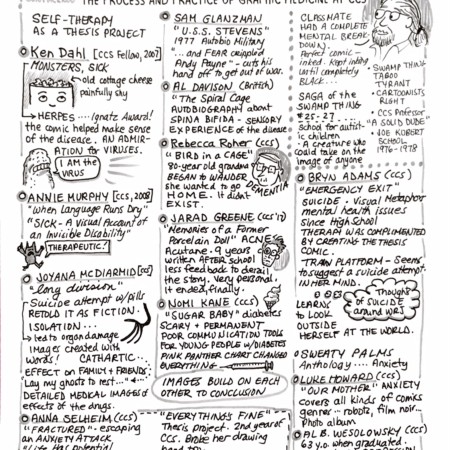 THE PROCESS AND PRACTICE OF GRAPHIC MEDICINE AT CCS
SELF-THERAPY
AS A THESIS PROJECT
Ken Dahl [CCS Fellow, 2007]
MONSTERS, SICK
old cottage cheese
painfully shy
HERPES .... Ignatz Award!
the comic helped make sense
of the disease. AN ADMIR-
ATION for VIRUSES.
I AM the
VIRUS
ANNIE MURPHY [CCS, 2008]
"when Language Runs Dry"
"SICK - A Visual Account of
an Invisible Disability"
THERAPEUTIC!
JOYANA McDIARMID [CCS]
"long division"
Suicide attempt w/pills
RETOLD IT AS FICTION.
ISOLATION...
led to organ damage
Images created with
words! CATHARTIC..
EFFECT ON FAMILY + FRIENDS
Lay my ghosts to rest..."
DETAILED MEDICAL IMAGES +
effects of the drugs.
ANNA SELHEIM (CCS)
"FRACTURED" - escaping
an ANXIETY ATTACK
SAM GLANZMAN
"U.S.S. STEVENS"
1977 Autobio Militan
...and FEAR crippled
Andy Payne" - cuts his
hand off to get out of war.
AL DAVISON (British)
"The Spiral Cage"
AUTOBIOGRAPHY ABOUT
SPINA BIFIDA - SENSORY
EXPERIENCE of the disease
Rebecca Roher (CCS)
"BIRD in a CAGE"
80-year old grandma
BEGAN to WANDER
she wanted to go
HOME. IT didn't
EXIST.
DEMENTIA
JARAD GREENE (CCS'17)
"Memories of a Former
Porcelain Doll" ACNE
Acutane - 9 years
written AFTER school
less feedback to derail
the story. Very personal.
It ended, finally.
NOMI KANE (CCS)
"SUGAR BABY" diabetes
SCARY + PERMANENT
POOR COMMUNICATION TOOLS
FOR YOUNG PEOPLE W/DIABETES
PINK PANTHER CHART CHANGED
EVERYTHING
IMAGES BUILD ON EACH
OTHER TO CONCLUSION
"EVERYTHING'S FINE"
Thesis project. 2nd year of
CCS. Broke her drawing
CLASSMATE
HAD A COMPLETE
MENTAL BREAK
DOWN.
Perfect comic
inked. Kept inking
until completely
BLACK...
SAGA of the
SWAMP THING
#25-27...
School for autist-
ic children
A creature who
could take on the
image of anyone
SWAMP THING
TABOO
TYRANT
CARTOONISTS
RIGHT
CCS Professor
"A SOLID DUDE"
JOE KUBERT
SCHOOL
1976-1978
BRYN ADAMS (CCS)
"EMERGENCY EXIT"
SUICIDE - Visual Metaphor
mental health issues
since High School
THERAPY WAS COMPLIMENTED
BY CREATING THE THESIS
COMIC.
TRAIN PLATFORM - Seems
to suggest a suicide attempt.
IN HER MIND.
LEARNS
to LOOK
OUTSIDE
HERSELF AT THE WORLD.
Thought
of SUICIDE
SWEATY PALMS
Anthology .... Anxiety
LUKE HOWARD (CCS)
"OUR MOTHER" ANXIETY
covers all kinds of comics
genres - robots, film noir...
Photo album
AL B. WESOLOWSKY (CCS)
63 y.o when graduated.